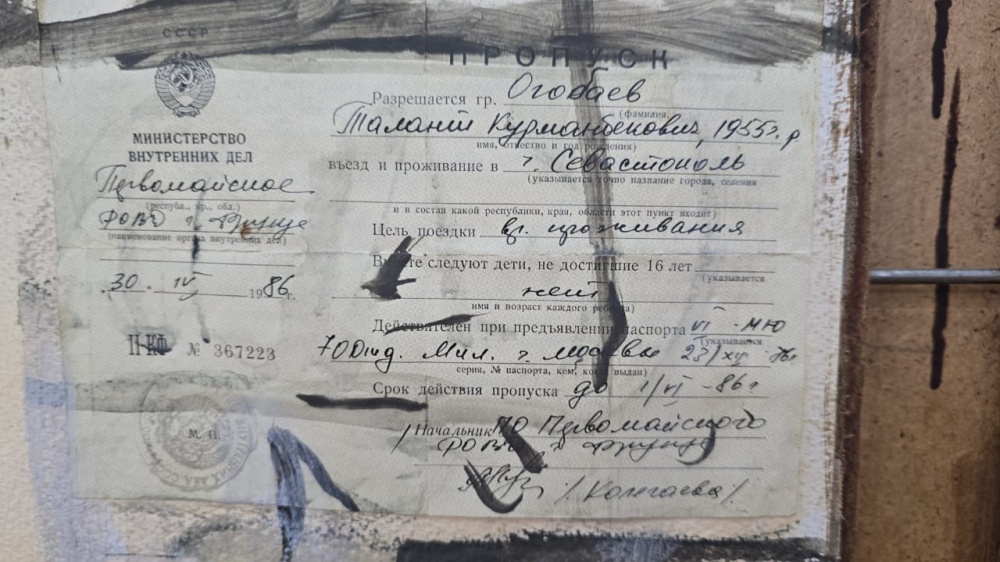 СССР
МИНИСТЕРСТВО
ВНУТРЕННИХ ДЕЛ
Первомайское
(республ., кр., обл.)
РОВД г. Фрунзе
(наименование органа внутренних дел)
30. IV 1986г.
II-КФ № 367223
М. П
ПРОПУСК
Разрешается гр. Огобаев
(фамилия,
Талант Курманбекович, 1955г. р
имя, отчество и год рождения)
въезд и проживание в г. Севастополь
(указывается точно название города, селения
и в состав какой республики, края, области этот пункт входит)
Цель поездки вр. проживания
Вместе следуют дети, не достигшие 16 лет
(указывается
нет
имя и возраст каждого ребенка)
Действителен при предъявлении паспорта VI - МЮ
(указывается
700тд. Мил. г. Москвы 23/XII 76г
серия, № паспорта, кем, когда выдан)
Срок действия пропуска до 1/VI - 86г
Начальник ПО Первомайского
РОВД г Фрунзе
/